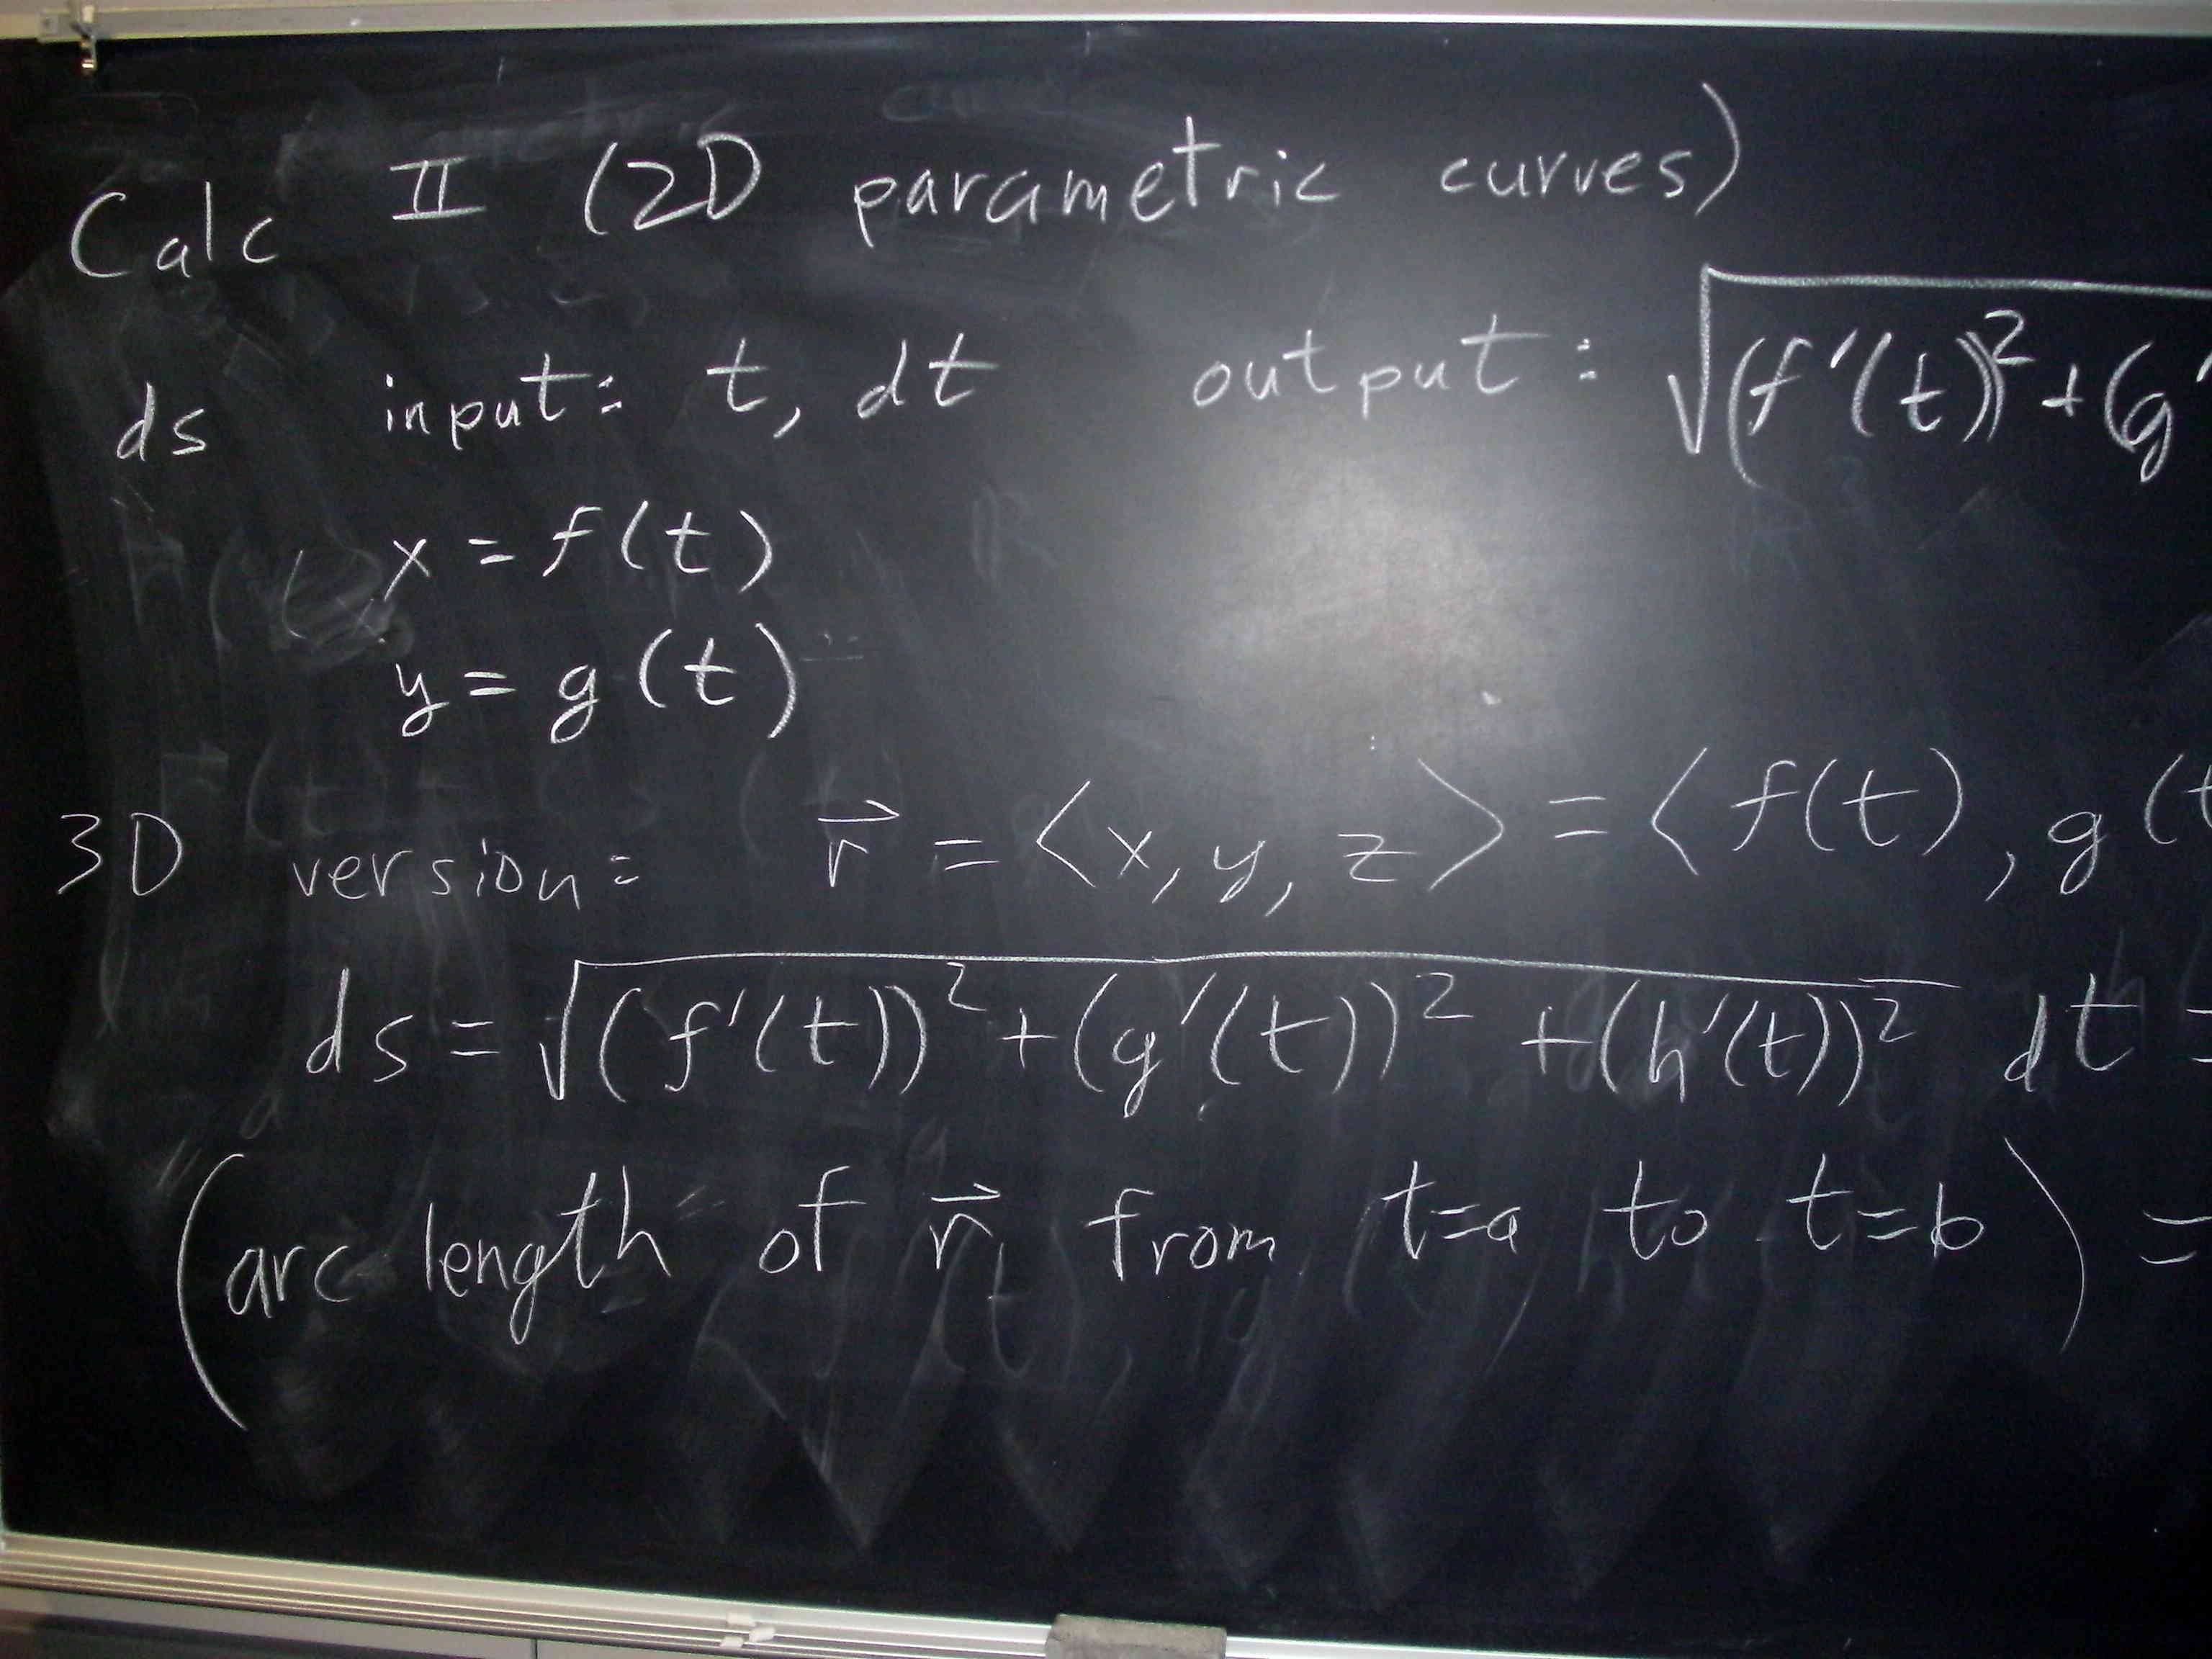 Calc II (2D parametric curves)
ds input: t, dt output: √(f'(t))² + (g'
x = f(t)
y = g(t)
3D version: r⃗ = ⟨x, y, z⟩ = ⟨f(t), g(t
ds = √(f'(t))² + (g'(t))² + (h'(t))² dt =
(arc length of r⃗ from t=a to t=b) =